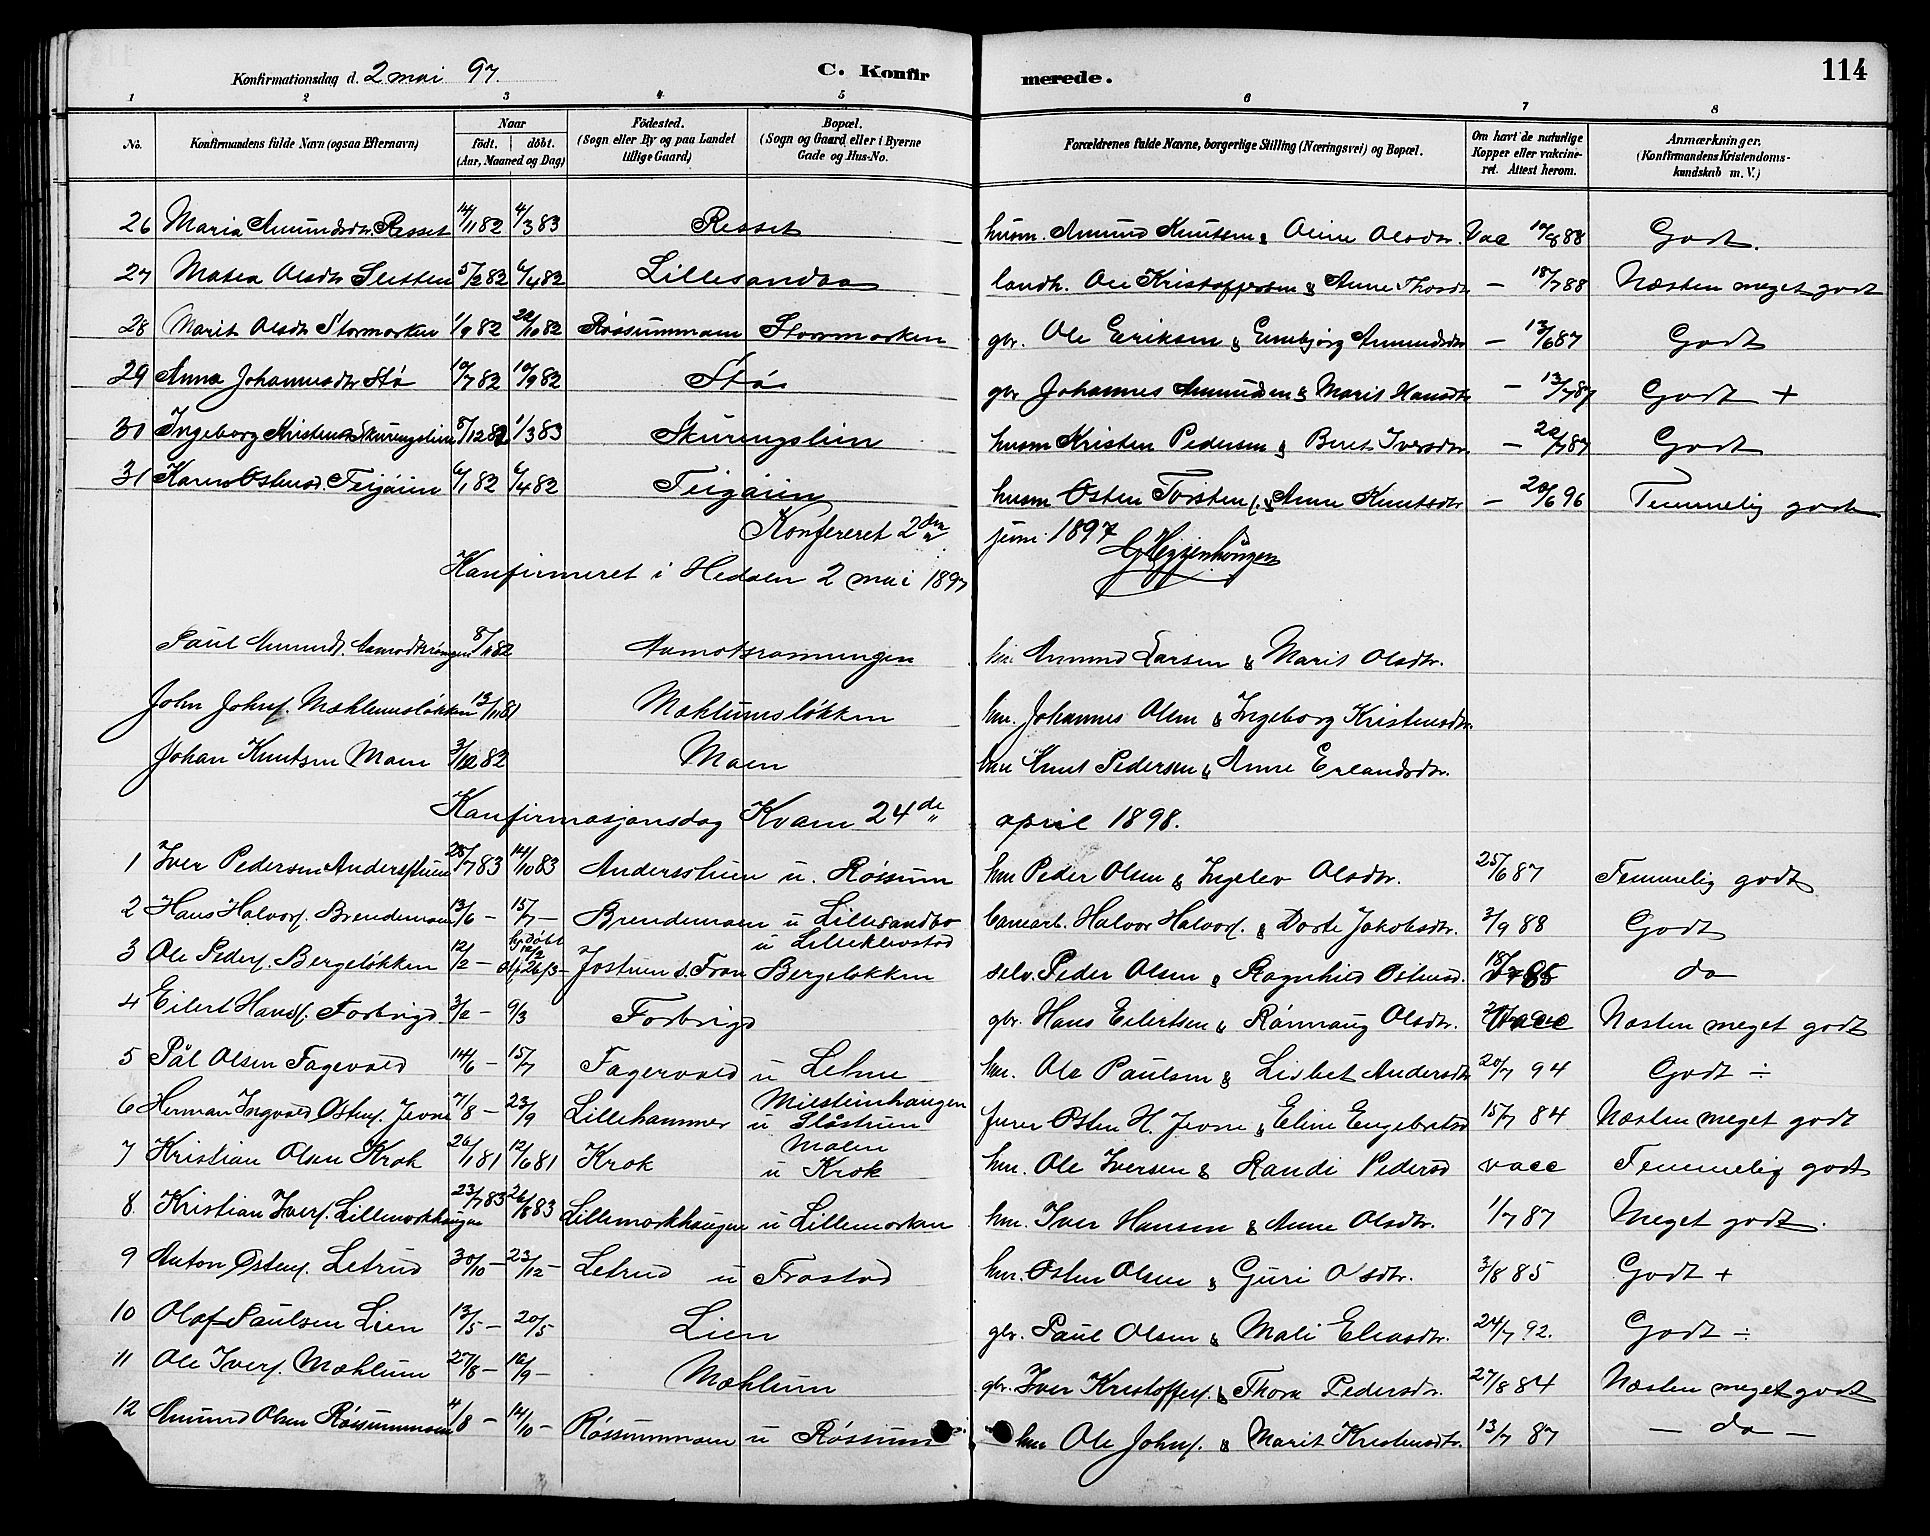 Konfirmationsdag d. 2 mai 97. C. Konfirmerede. 114
1 2 3 4 5 6 7 8
No. Konfirmandens fulde Navn (ogsaa Efternavn) Naar født. døbt. (Aar, Maaned og Dag) Fødested. (Sogn eller By og paa Landet tillige Gaard) Bopæl. (Sogn og Gaard, eller i Byerne Gade og Hus-No. Forældrenes fulde Navne, borgerlige Stilling (Næringsvei) og Bopæl. Om havt de naturlige Kopper eller vakcineret. Attest herom. Anmærkninger. (Konfirmandens Kristendomskundskab m. V.)
26 Maria Amundsdtr. Resset 14/11 82 4/3 83 Resset husm. Amund Knutsen & Oline Olsdtr. Vac 88 Godt.
27 Matea Olsdtr Sletten 5/2 82 6/4 82 Lillesandbo landh. Ole Kristoffersen & Anne Thosdtr — 18/7 88 Næsten meget godt
28 Marit Olsdtr Stormorken 1/9 82 22/10 82 Røssummoen Stormorken gbr. Ole Eriksen & Embjørg Amundsdtr — 13/6 87 Godt
29 Anna Johannesdtr Stø 10/7 82 10/9 82 Stø gbr Johannes Amundsen & Marit Hansdtr — 13/7 87 Godt +
30 Ingeborg Kristensd. Skurengslien 8/12 82 1/3 83 Skurengslien husm Kristen Pedersen & Berit Iversdtr — 22/7 87 Godt
31 Karen Østensd. Teigøien 6/1 82 6/4 82 Teigøien husm Østen Torstens. & Anne Knutsdtr — 20/6 96 Temmelig godt
Konfereret 2den juni 1897
Konfirmeret i Hedalen 2 mai 1897
Paul Amunds. 8/11 82 Aamotsrønningen hm. Amund Larsen & Marit Olsdtr.
John Johns. Mæhlumsløkken 13/11 81 Mæhlumsløkken hm. Johannes Olsen & Ingeborg Kristensdtr.
Johan Knutsen Moen 3/12 82 Moen hm Knut Pedersen & Anne Erlandsdtr.
Konfirmasjonsdag Kvam 24de april 1898.
1 Iver Pedersen Andersstuen 28/7 83 14/10 83 Andersstuen u. Røssum hm Peder Olsen & Ingelev Olsdtr. 25/6 87 Temmelig godt
2 Hans Halvors. Brendemoen 13/6 — 15/7 — Brendemoen u Lillesandbo banearb. Halvor Halvors. & Dorte Jakobsdtr. 3/9 88 Godt
3 Ole Peders. Bergeløkken 12/2 — hj. døbt 12/2 26/3 — Jostuen s. Fron u Lillekleivstad Bergeløkken selv. Peder Olsen & Ragnhild Østensd. 18/7 85 do
4 Eilert Hans. Forbrigd 3/2 — 9/3 Forbrigd gbr. Hans Eilertsen & Rønnaug Olsdtr. vacc Næsten meget godt
5 Pål Olsen Fagervold 14/6 — 15/7 Fagervold u Lehne hm. Ole Paulsen & Lisbet Andersdtr 20/7 94 Godt ÷
6 Herman Ingvald Østens. Jevne 7/8 — 23/9 Lillehammer Milsteinhaugen u Slåstuen furer Østen H. Jevne & Eline Engebretsd 15/7 84 Næsten meget godt
7 Kristian Olsen Krok 26/1 81 12/6 81 Krok Moten u Krok hm. Ole Iversen & Randi Pedersd vacc Temmelig godt
8 Kristian Ivers. Lillemorkhaugen 23/7 83 26/8 83 Lillemorkhaugen u Lillemorken hm. Iver Hansen & Anne Olsdtr. 1/7 87 Meget godt.
9 Anton Østens. Letrud 30/10 — 23/12 — Letrud u Frostad hm. Østen Olsen & Guri Olsdtr. 3/8 85 Godt +
10 Olaf Paulsen Lien 13/5 — 20/5 Lien gbr. Paul Olsen & Mali Eliasdtr. 24/7 92. Godt ÷
11 Ole Ivers. Mæhlum 27/8 — 16/9 — Mæhlum gbr. Iver Kristoffers. & Thora Pedersdtr. 27/8 84 Næsten meget godt
12 Amund Olsen Røssummoen 11/8 — 14/10 — Røssummoen u Røssum hm Ole Johns. & Marit Kristensdtr. 13/7 87 — do —